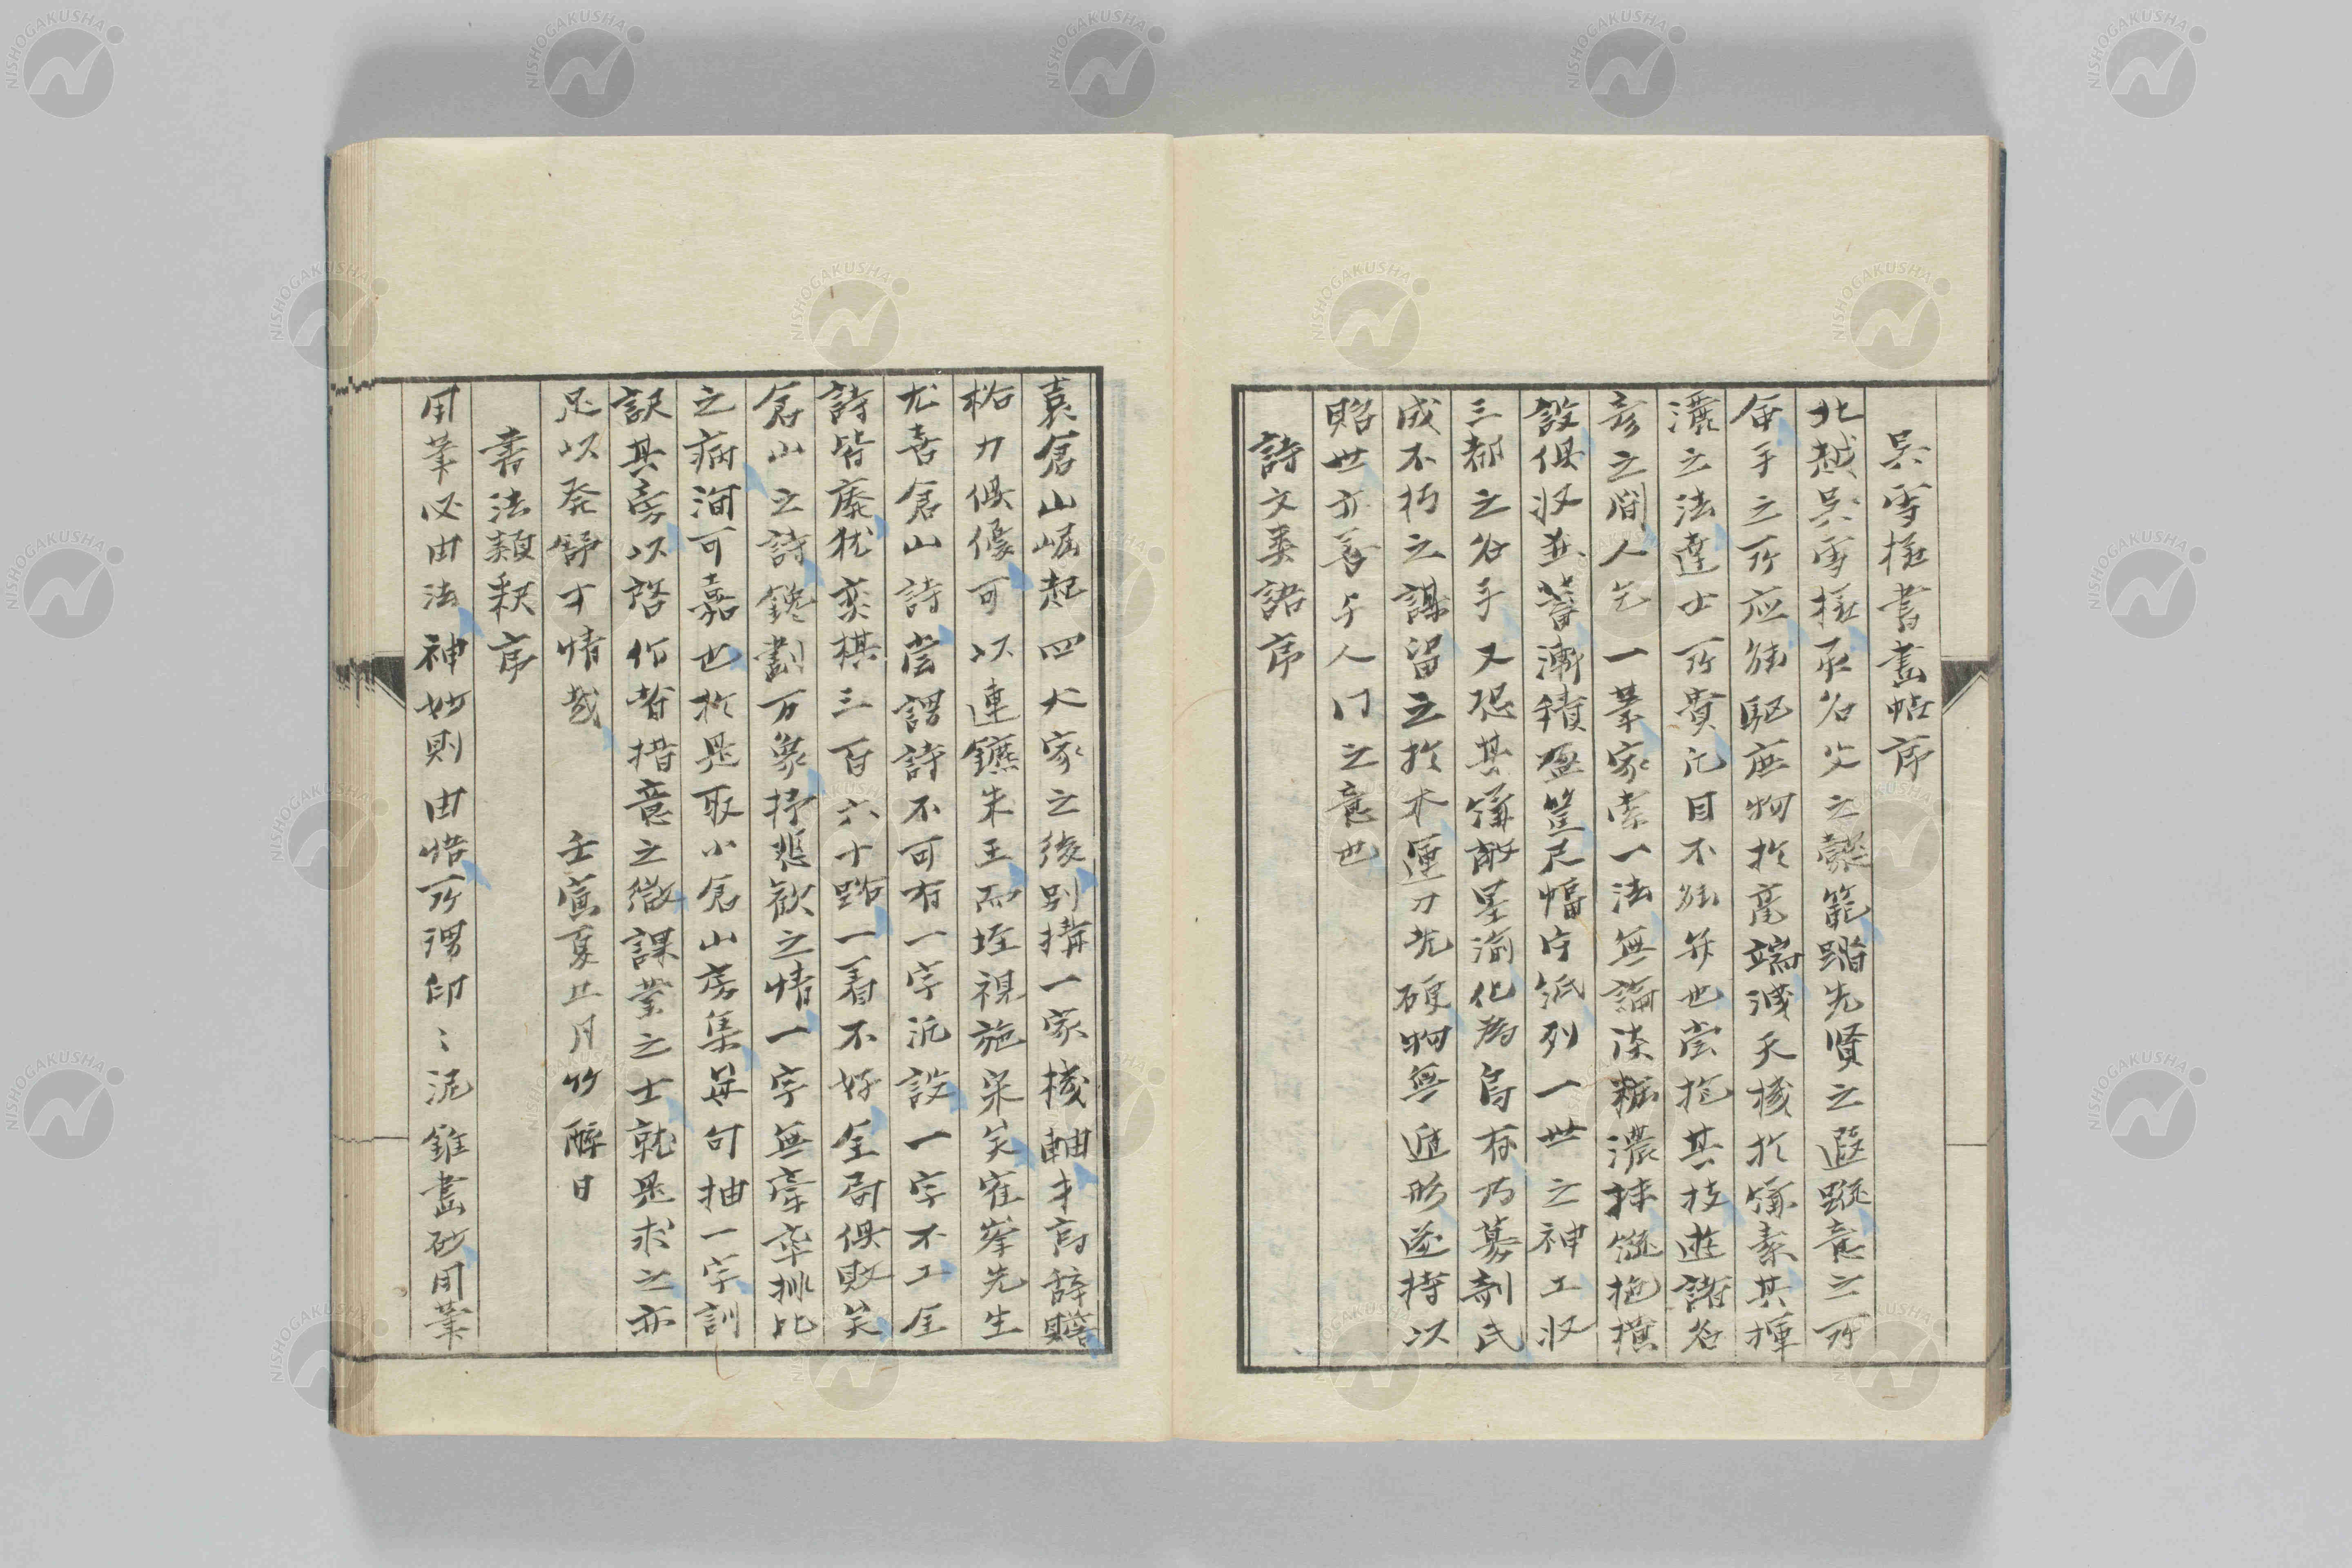 呉雪樵書畫帖序
北越呉雪樵承名父之懿範踏先賢之遐蹤意之所
命手之所应能駆庶物於毫端洩天機於縑素其揮
灑之法達士所貴凡目不能弁也嘗抱其技遊諸名
彦之間人乞一筆家索一法無論淡粧濃抹縦拖横
設俱収並蓄漸積盈筐尺幅片紙列一世之神工収
三都之名手又恐其縑敝墨渝化為烏有乃募剞氏
成不朽之謀留之於木運刀尤硬物無遁形遂持以
貽世亦善与人同之意也
詩文葉語序
袁倉山崛起四大家之後別構一家機軸才高辞贍
格力俱優可以連鑣朱王而抂視施宋矣寉峯先生
尤喜倉山詩嘗謂詩不可有一字汎設一字不工全
詩皆廃犹奕棋三百六十路一着不好全局俱敗矣
倉山之詩鑱劃万象抒悲歓之情一字無牽率排比
之病洵可嘉也於是取小倉山房集毎句抽一字訓
訳其旁以啓作者措意之微課業之士就是求之亦
足以発舒才情哉　壬寅夏五月竹酔日
書法類釈序
用筆必由法神妙則由悟所謂印〻泥錐畫砂用筆